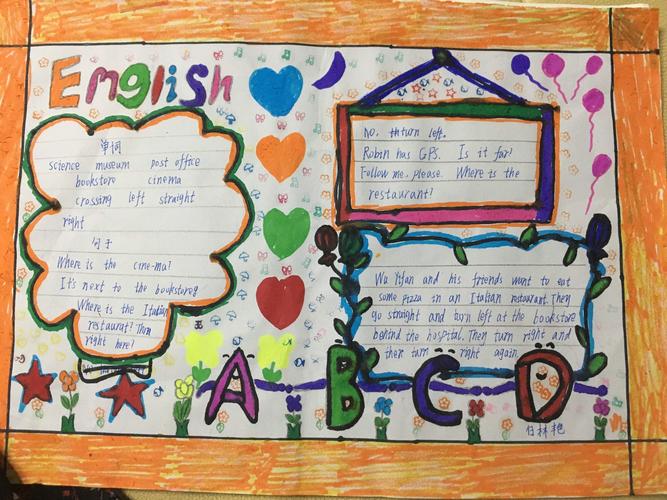 English
单词
science museum post office
bookstore cinema
crossing left straight
right
句子
Where is the cine-ma?
It's next to the bookstore.
Where is the Italian
restaurat? Thrn
right here?
No. thturn left.
Robin has GPS. Is it far?
Follow me. please. Where is the
restaurant?
Wu Yifan and his friends want to eat
some pizza in an Italian restaurant. They
go straight and turn left at the bookstore
behind the hospital. Then turn right and
then turn right again.
A B C D
白林艳